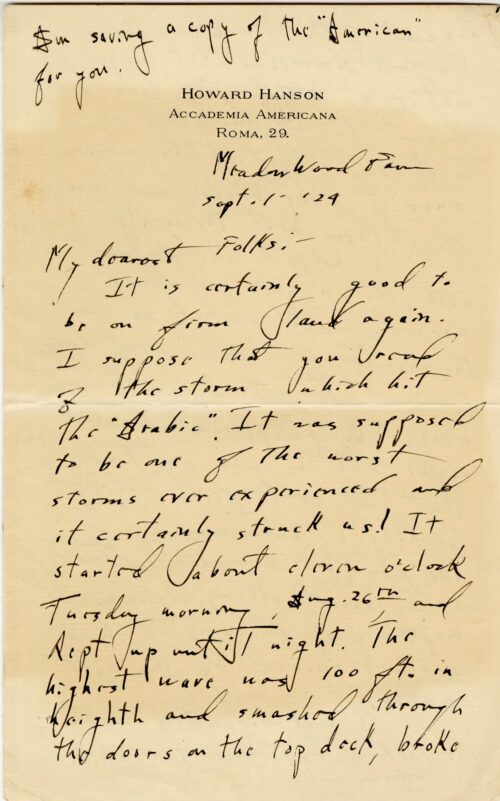 Am saving a copy of the "American"
for you.
HOWARD HANSON
ACCADEMIA AMERICANA
ROMA, 29.
Meadow Wood Farm
Sept. 1- '24
My dearest Folks:-
It is certainly good to
be on firm land again.
I suppose that you read
of the storm which hit
the "Arabic". It was supposed
to be one of the worst
storms ever experienced and
it certainly struck us! It
started about eleven o'clock
Tuesday morning, Aug. 26th, and
kept up until night. The
highest wave was 100 ft. in
heighth and smashed through
the doors on the top deck, broke